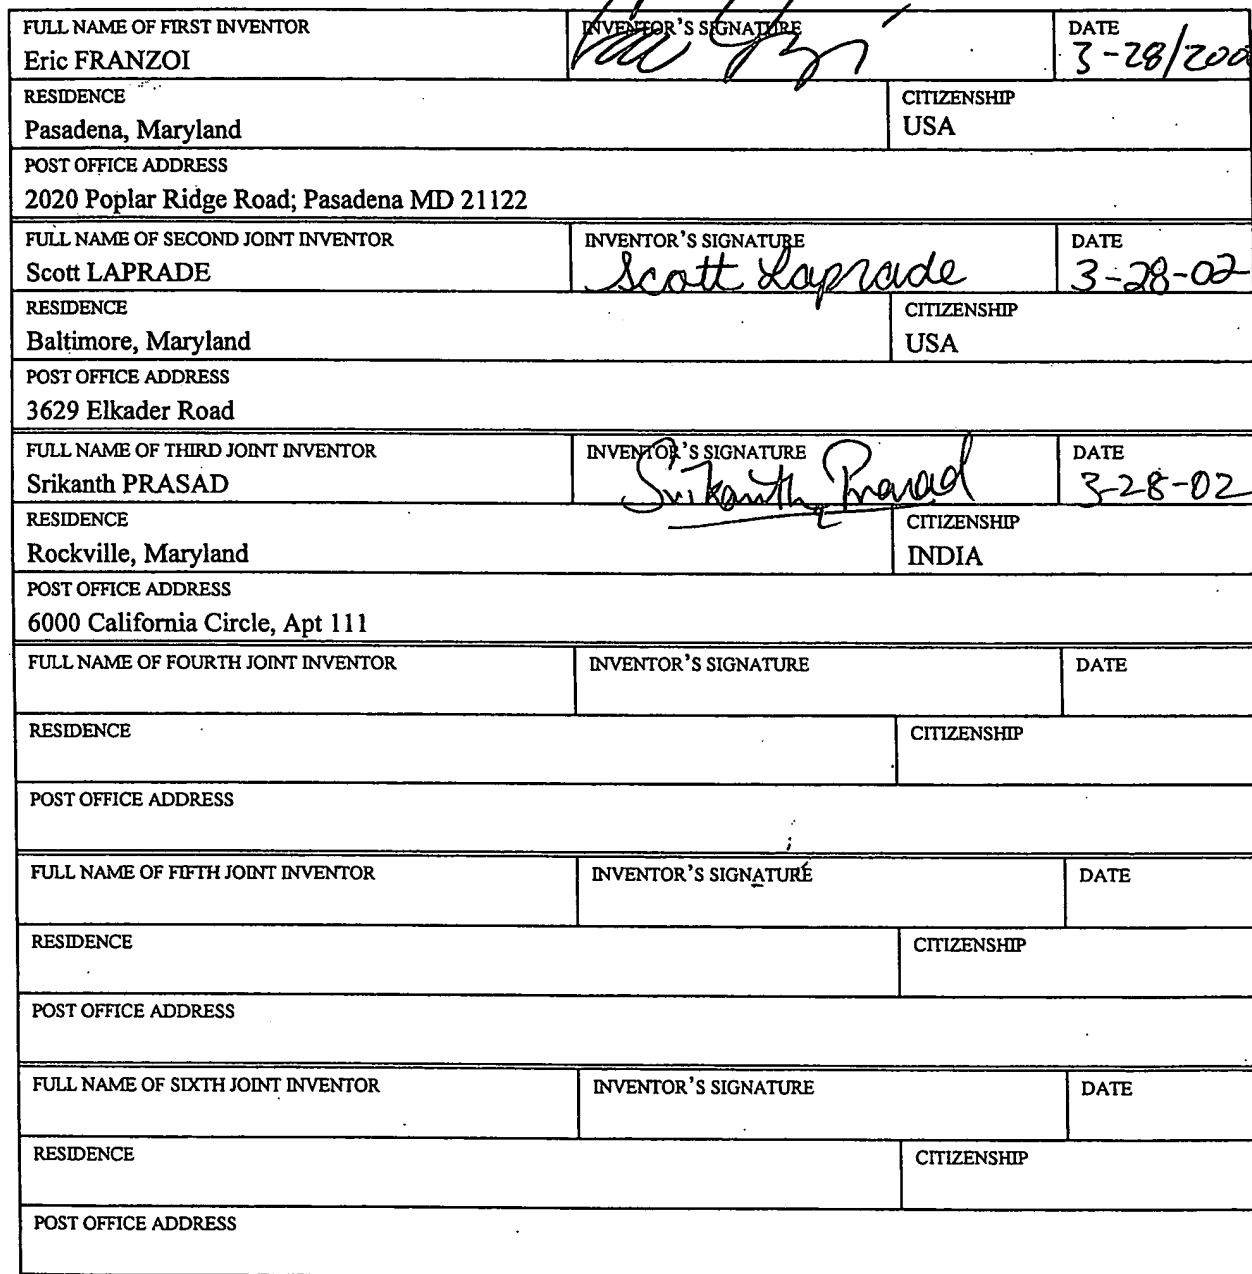 FULL NAME OF FIRST INVENTOR INVENTOR'S SIGNATURE DATE
Eric FRANZOI 3-28/200
RESIDENCE CITIZENSHIP
Pasadena, Maryland USA
POST OFFICE ADDRESS
2020 Poplar Ridge Road; Pasadena MD 21122
FULL NAME OF SECOND JOINT INVENTOR INVENTOR'S SIGNATURE DATE
Scott LAPRADE Scott Laprade 3-28-02
RESIDENCE CITIZENSHIP
Baltimore, Maryland USA
POST OFFICE ADDRESS
3629 Elkader Road
FULL NAME OF THIRD JOINT INVENTOR INVENTOR'S SIGNATURE DATE
Srikanth PRASAD Srikanth Prasad 3-28-02
RESIDENCE CITIZENSHIP
Rockville, Maryland INDIA
POST OFFICE ADDRESS
6000 California Circle, Apt 111
FULL NAME OF FOURTH JOINT INVENTOR INVENTOR'S SIGNATURE DATE
RESIDENCE CITIZENSHIP
POST OFFICE ADDRESS
FULL NAME OF FIFTH JOINT INVENTOR INVENTOR'S SIGNATURE DATE
RESIDENCE CITIZENSHIP
POST OFFICE ADDRESS
FULL NAME OF SIXTH JOINT INVENTOR INVENTOR'S SIGNATURE DATE
RESIDENCE CITIZENSHIP
POST OFFICE ADDRESS